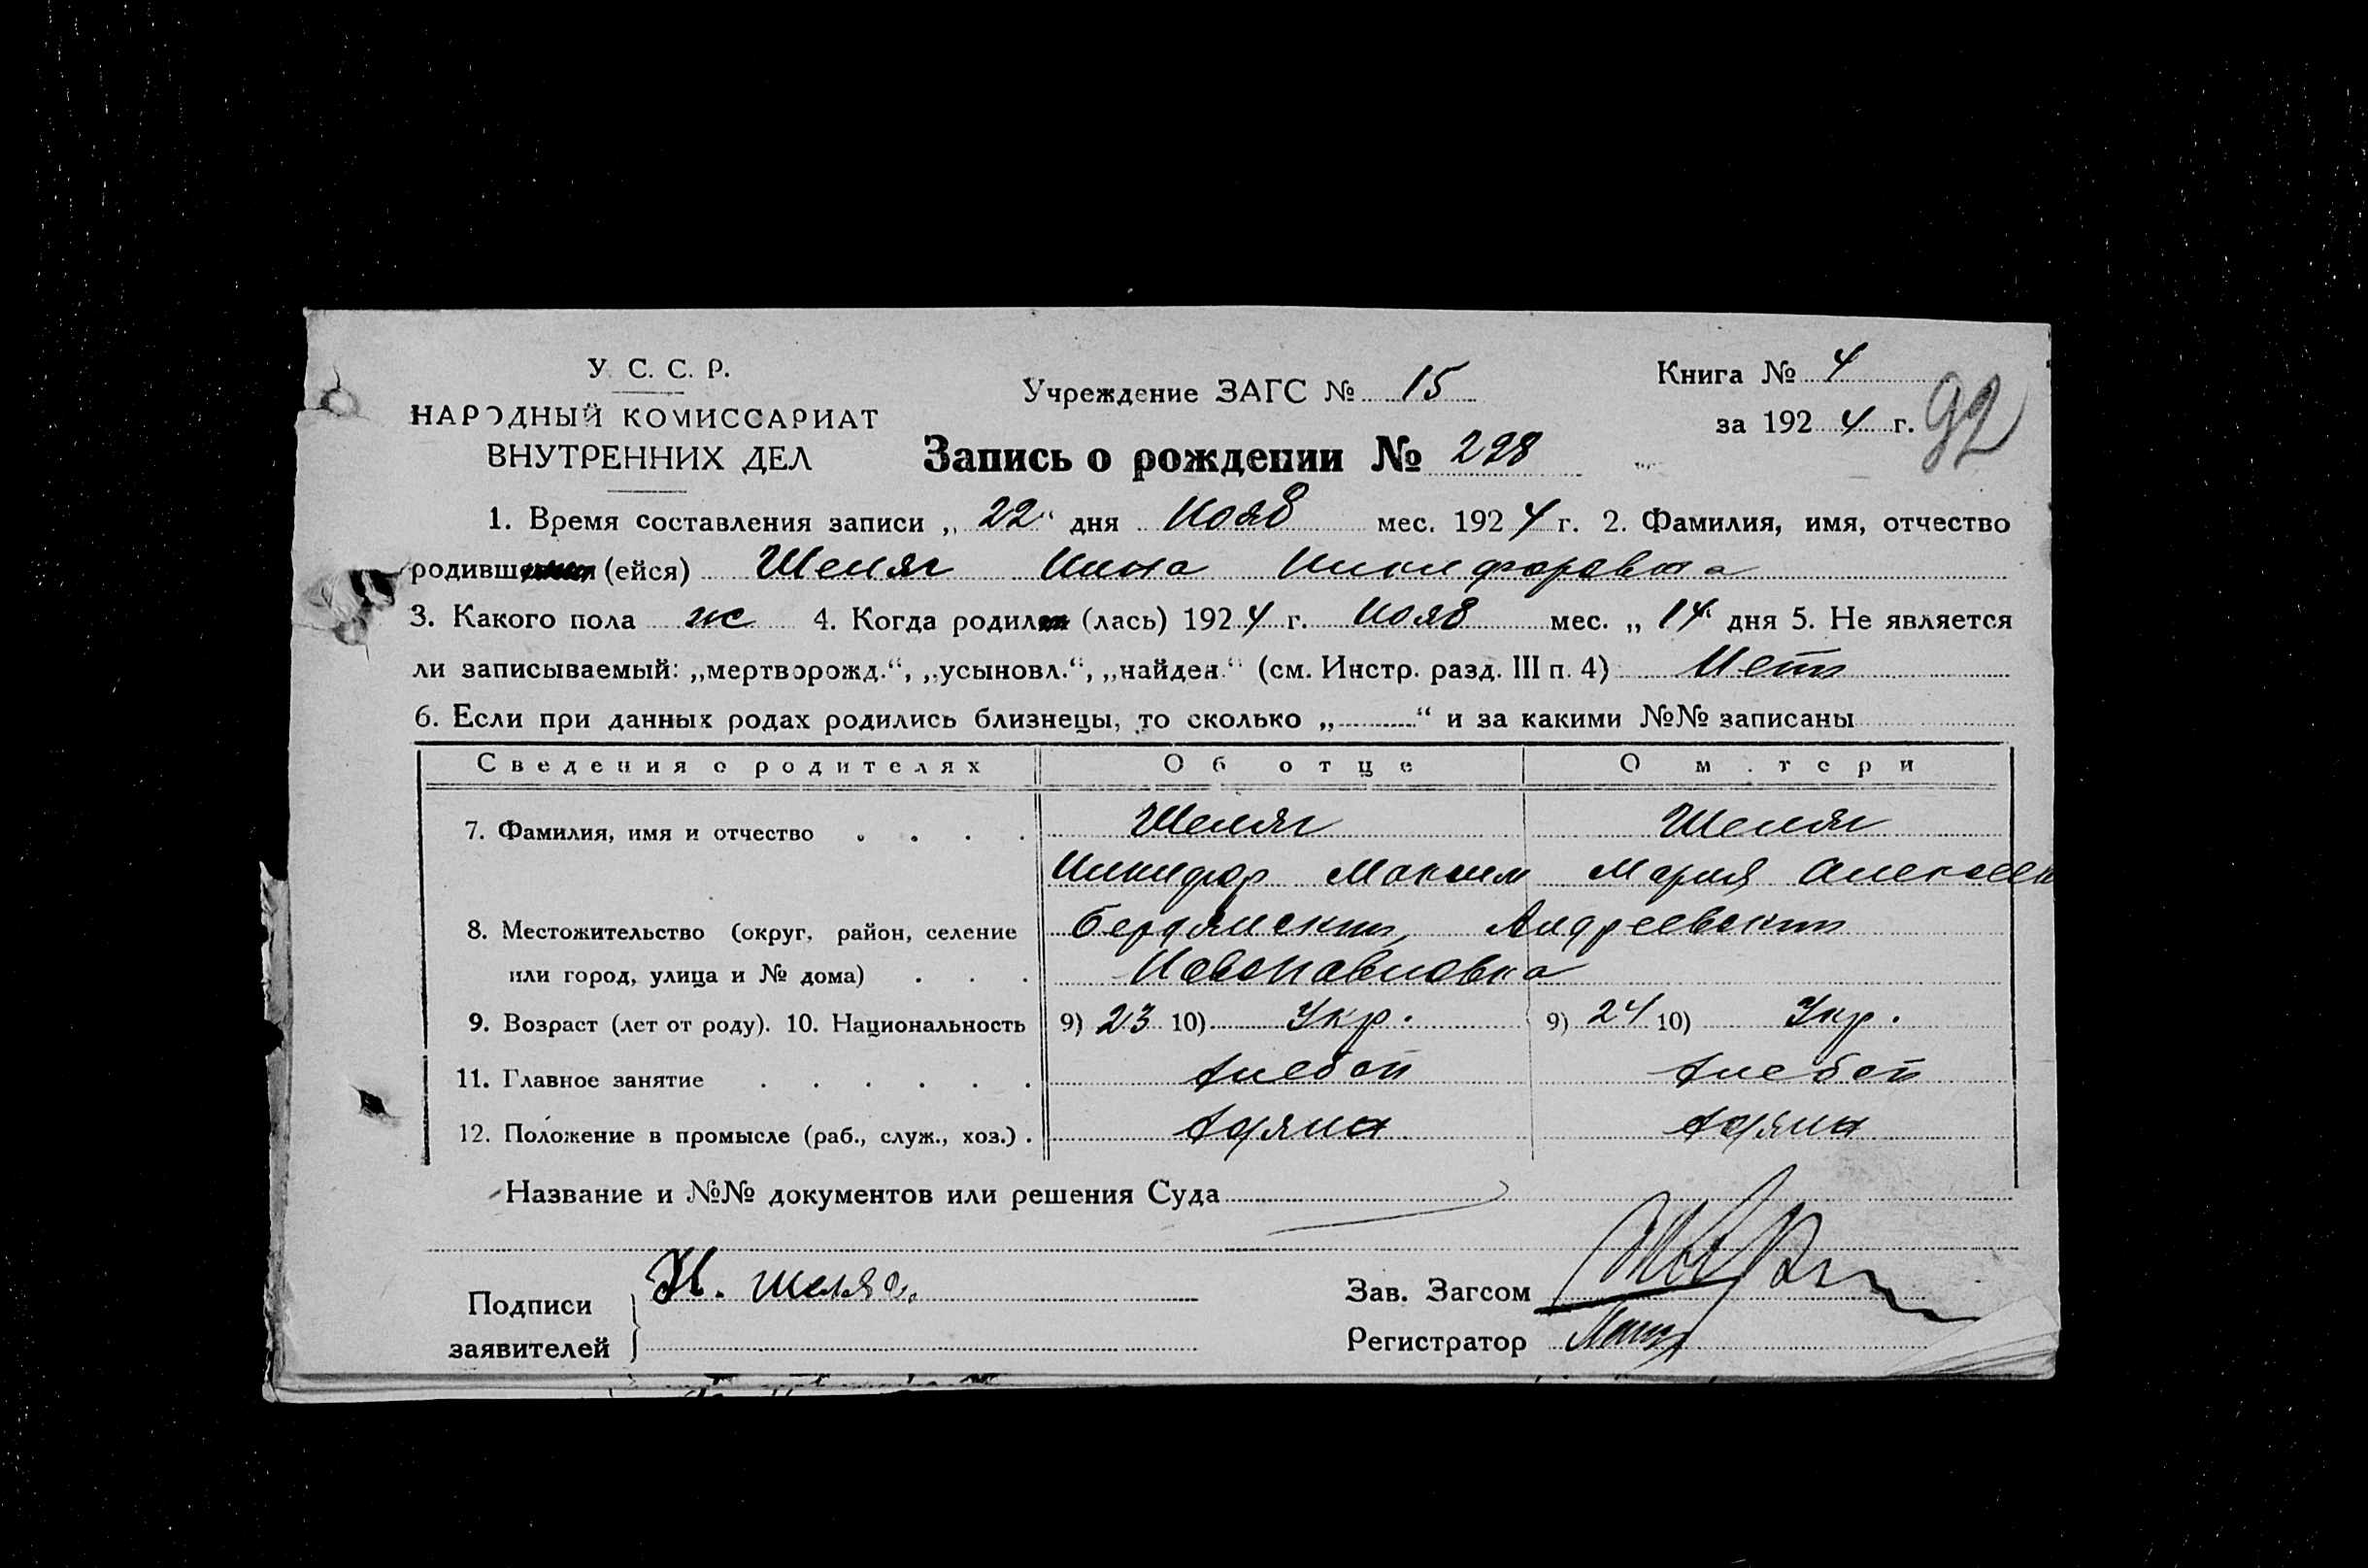 У. С. С. Р.
НАРОДНЫЙ КОМИССАРИАТ
ВНУТРЕННИХ ДЕЛ
Учреждение ЗАГС № 15
Книга № 4
за 1924 г.
92
Запись о рождении № 298
1. Время составления записи „22“ дня Нояб мес. 1924 г. 2. Фамилия, имя, отчество
родивш (ейся) Шеляг Нина Никифоровна
3. Какого пола ж 4. Когда родил (лась) 1924 г. Нояб мес. „14“ дня 5. Не является
ли записываемый: „мертворожд.“, „усыновл.“, „найден.“ (см. Инстр. разд. III п. 4) Нет
6. Если при данных родах родились близнецы, то сколько „“ и за какими №№ записаны
Сведения о родителях Об отце О матери
7. Фамилия, имя и отчество . . . . Шеляг Шеляг
Никифор Максим Мария Алексеев
8. Местожительство (округ, район, селение Бердянский, Андреевский
или город, улица и № дома) . . . Новопавловка
9. Возраст (лет от роду). 10. Национальность 9) 23 10) Укр. 9) 24 10) Укр.
11. Главное занятие . . . . . . Хлебоп Хлебоп
12. Положение в промысле (раб., служ., хоз.) .
Название и №№ документов или решения Суда
Подписи
заявителей
Н. Шеляг
Зав. Загсом
Регистратор